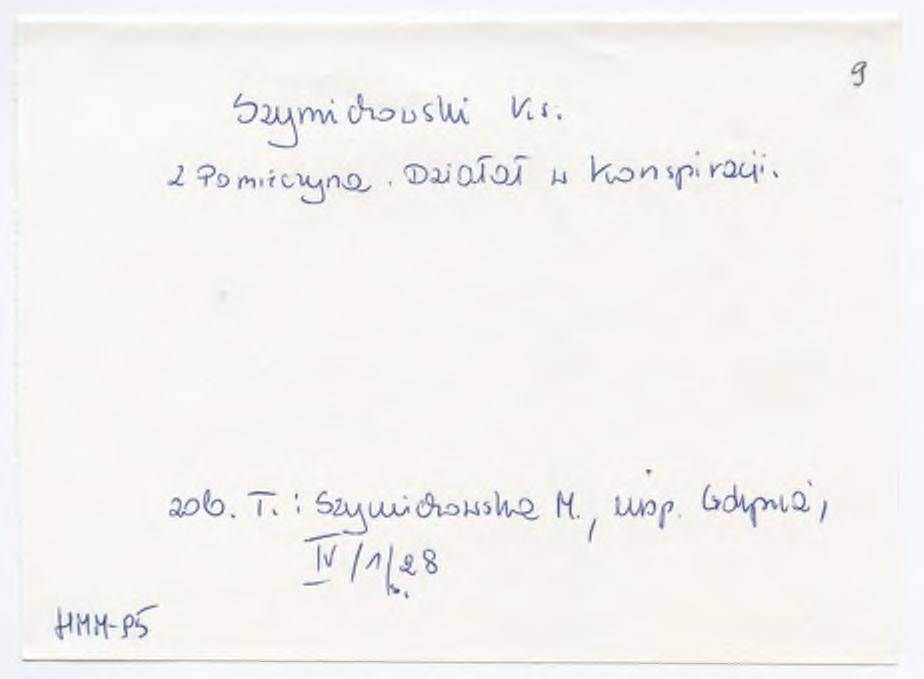 9
Szymichowski V.s.
z Pomieczyna. Działał w Konspiracji.
zob. T.: Szymichowska M., wsp. Gdynia,
IV/1/28
HMM-95